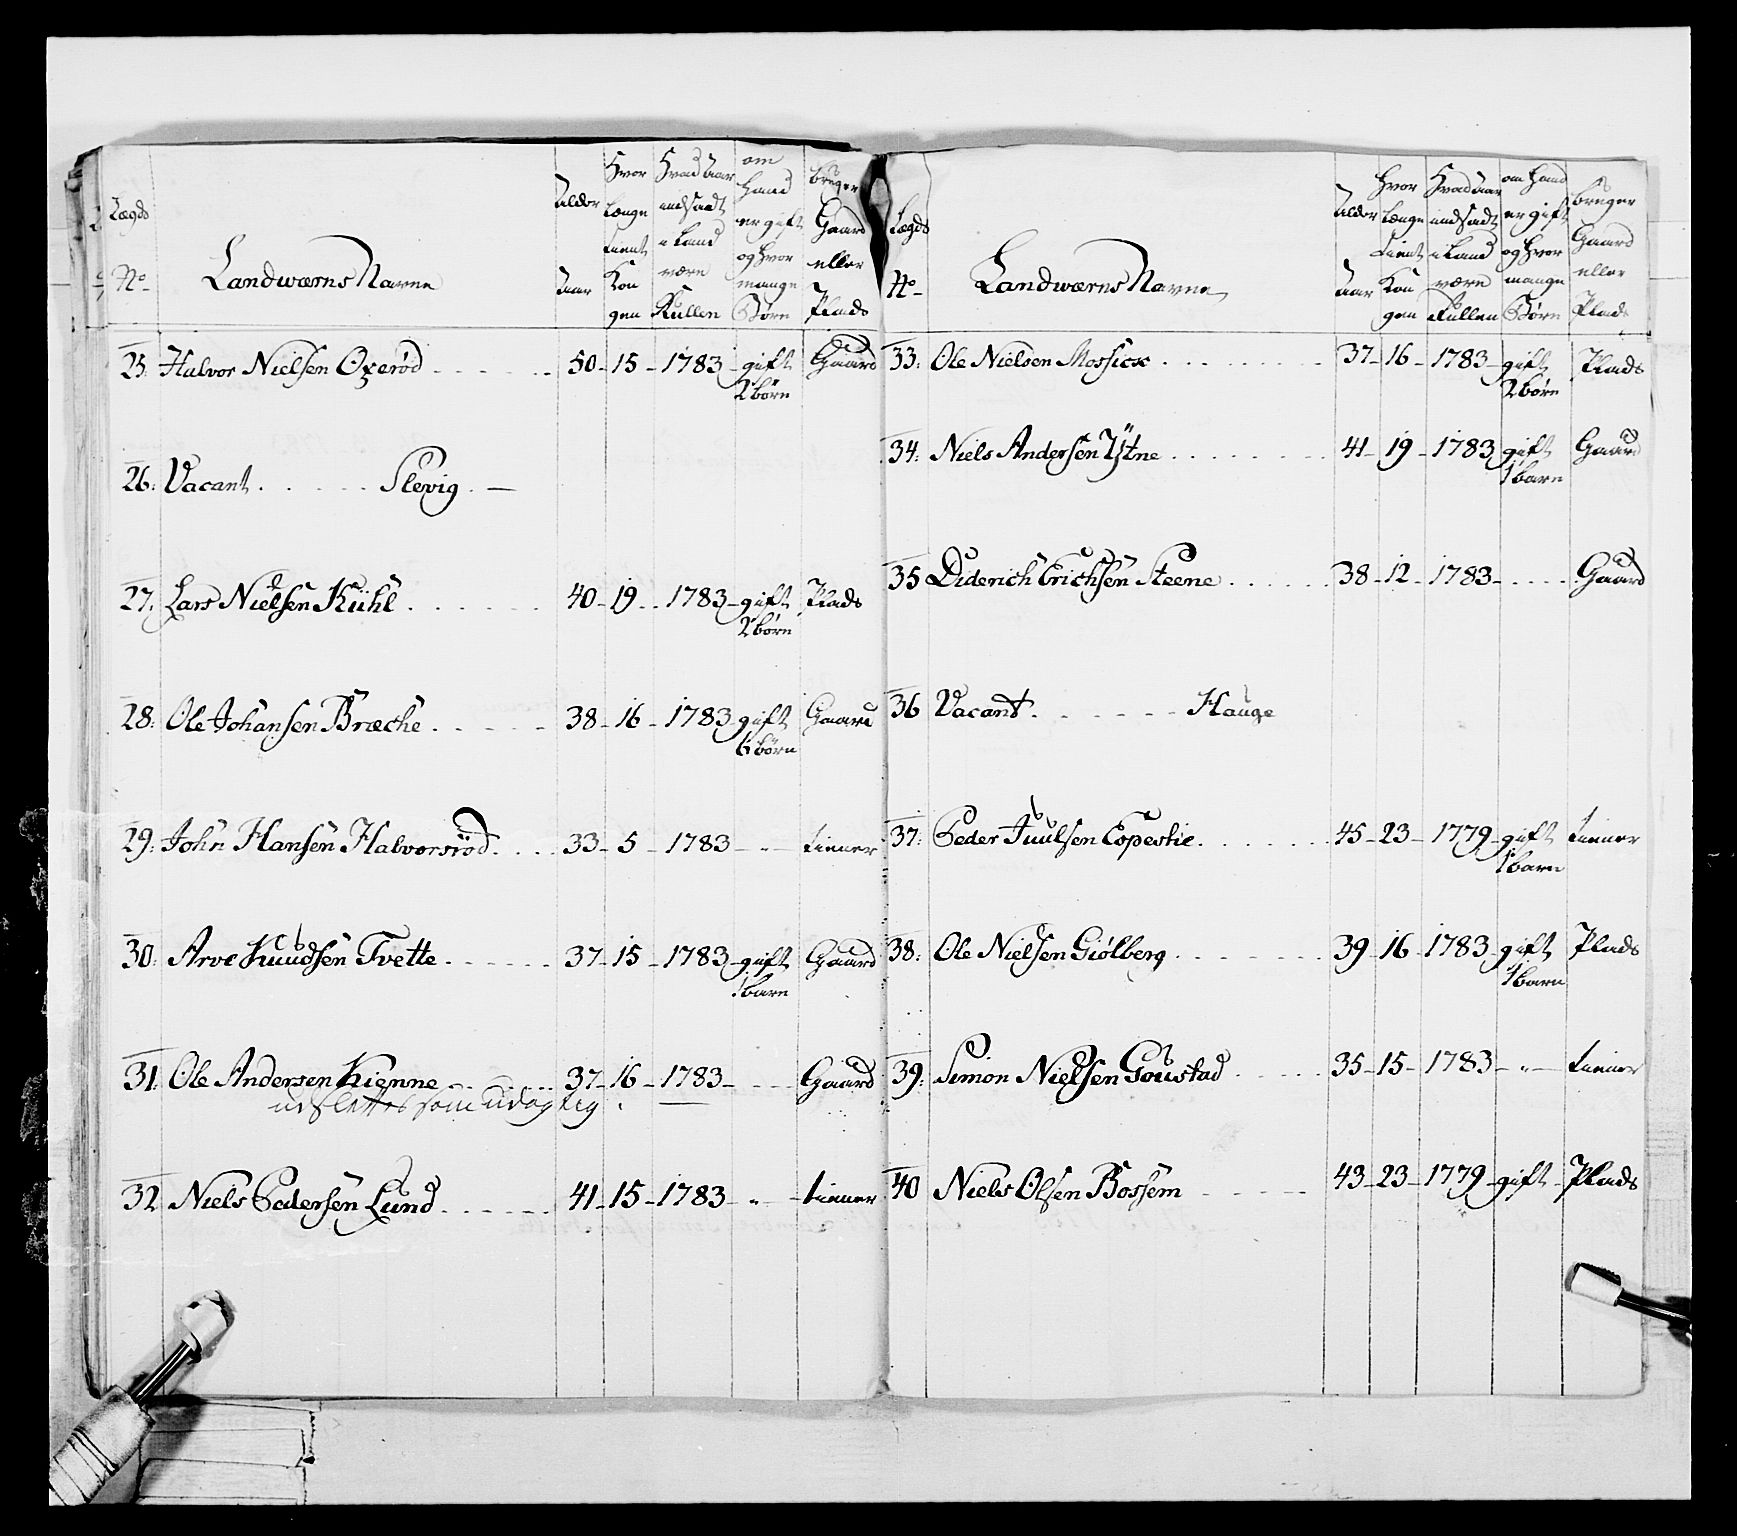 Lægds No
Landwærns Navne
Alder Aar
Hvor Længe tient Kongen
Hvad Aar indsadt i Landværn Rullen
om hand er gift og hvor mange Børn
bruger Gaard eller Plads
25: Halvor Nielsen Oxerød 50 15 1783 gift 2 børn Gaard
26: Vacant Slevig
27: Lars Nielsen Kühl 40 19 1783 gift 2 børn Plads
28: Ole Johansen Bræche 38 16 1783 gift 6 børn Gaard
29: John Hansen Halvorsröd 33 5 1783 " tiener
30: Arve Knudsen Tvette 37 15 1783 gift 1 barn Gaard
31: Ole Andersen Kienne 37 16 1783 Gaard
udslettes som udögtig
32 Niels Pedersen Lund 41 15 1783 " tiener
Lægds No
Landwærns Navne
Alder Aar
Hvor Længe tient Kongen
Hvad Aar indsadt i Landværn Rullen
om hand er gift og hvor mange Børn
bruger Gaard eller Plads
33: Ole Nielsen Mossice 37 16 1783 gift 2 børn Plads
34: Niels Andersen Ÿtne 41 19 1783 gift 1 barn Gaard
35 Diderich Erichsen Steene 38 12 1783 Gaard
36 Vacant Hauge
37: Peder Juulsen Eopestie 45 23 1779 gift 1 barn tiener
38: Ole Nielsen Giølberg 39 16 1783 gift 1 barn Plads
39: Simon Nielsen Goustad 35 15 1783 " tiener
40 Niels Olsen Bossem 43 23 1779 gift Plads